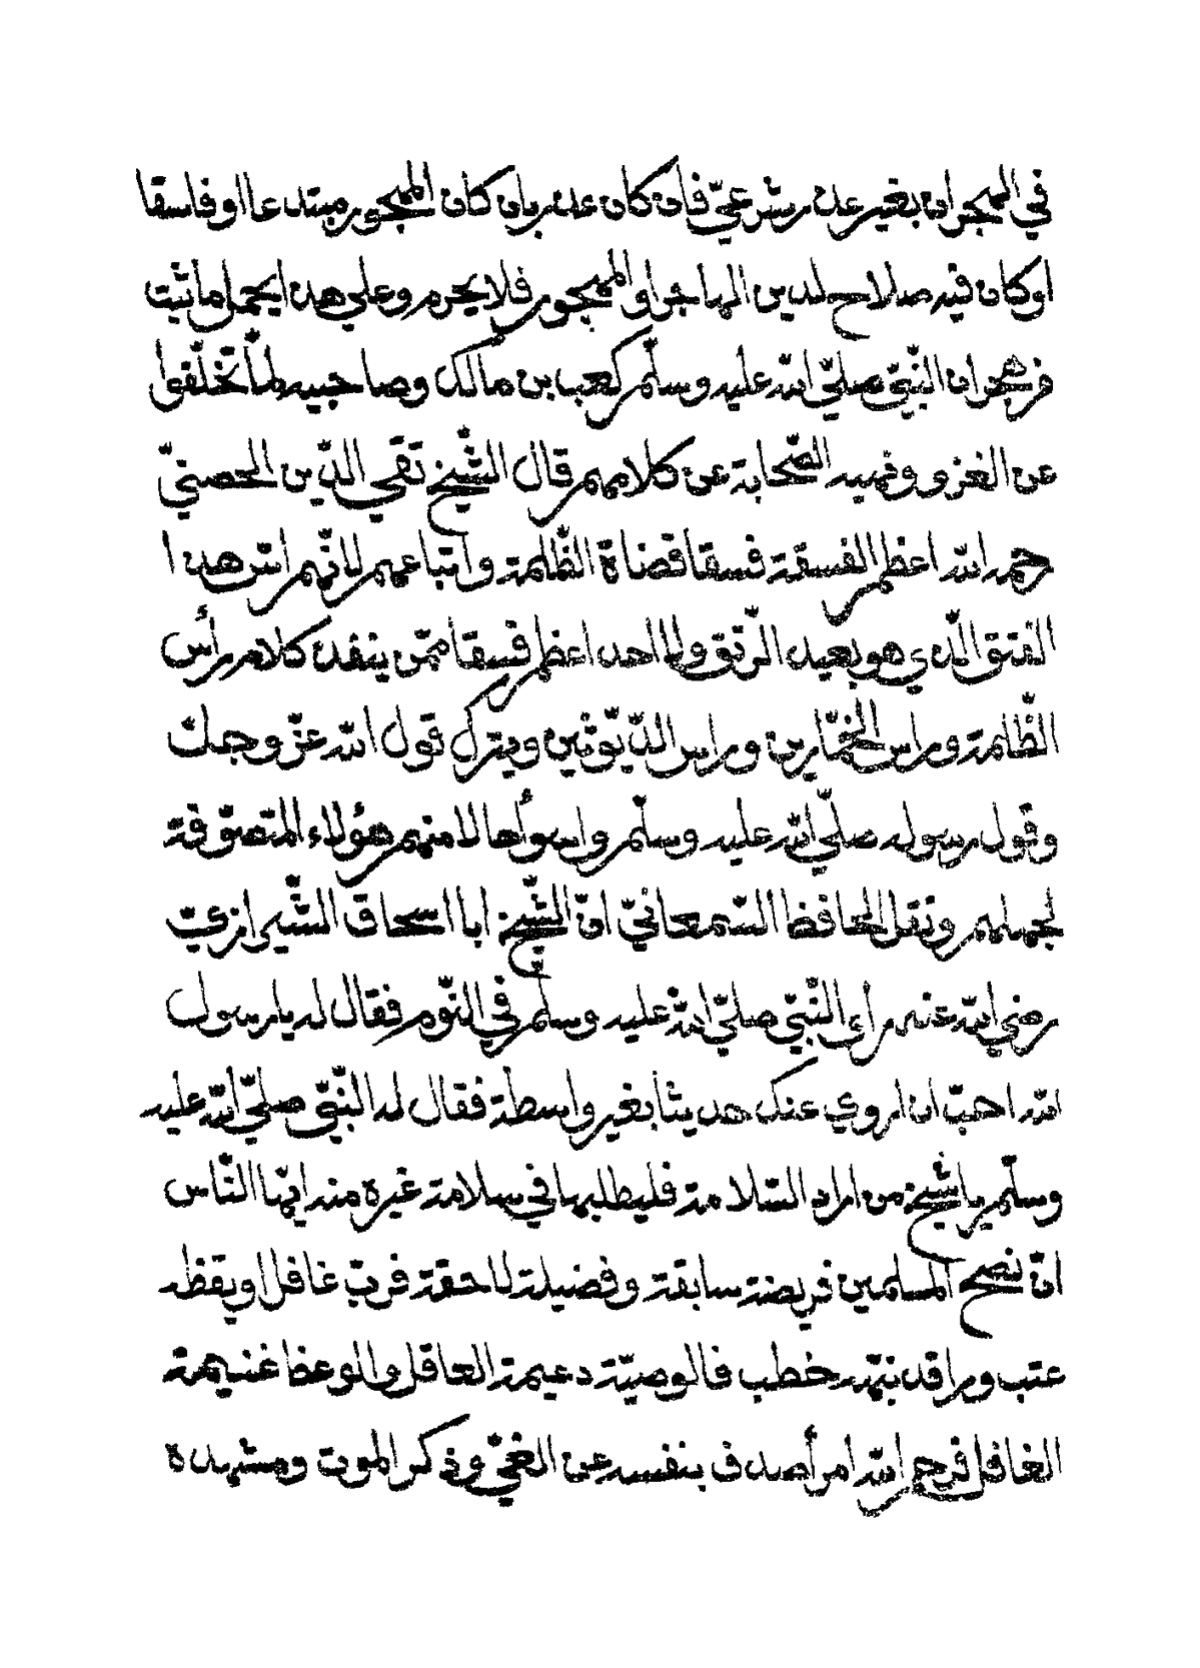 في الهجران بغير عذر شرعيّ فان كان عذر بان كان المهجور مبتدعا او فاسقا
او كان فيه صلاح لدين الهاجر او المهجور فلا يحرم وعلي هذا يحمل ما ثبت
من هجران النّبيّ صلّي الله عليه وسلّم كعب بن مالك وصاحبيه لمّا تخلّفوا
عن الغزو ونهيه الصّحابة عن كلامهم قال الشّيخ تقي الدّين الحصنيّ
رحمه الله اعظم الفسقة فسقا قضاة الظّلمة واتباعهم لانّهم اسّ هذا
الفتق الّذي هو بعيد الرّتق ولا احد اعظم فسقا ممّن ينفذ كلام رأس
الظّلمة وراس الخمّارين وراس الدّيّوثين ويترك قول الله عزّ وجلّ
وقول رسوله صلّي الله عليه وسلّم واسوأ حالا منهم هؤلاء المتصوّفة
لجهلهم ونقل الحافظ السّمعانيّ انّ الشّيخ ابا اسحاق الشّيرازيّ
رضي الله عنه رأى النّبيّ صلّي الله عليه وسلّم في النّوم فقال له يا رسول
الله احبّ ان اروي عنك حديثا بغير واسطة فقال له النّبيّ صلّي الله عليه
وسلّم يا شيخ من اراد السّلامة فليطلبها في سلامة غيره منه ايّها النّاس
انّ نصح المسلمين فريضة سابقة وفضيلة لاحقة فربّ غافل اويقظه
عتب وراقد نبّهه خطب فالوصيّة دعيمة العاقل والوعظ غنيمة
الغافل فرحم الله امرأ صدف بنفسه عن الغيّ وذكر الموت ومشهده